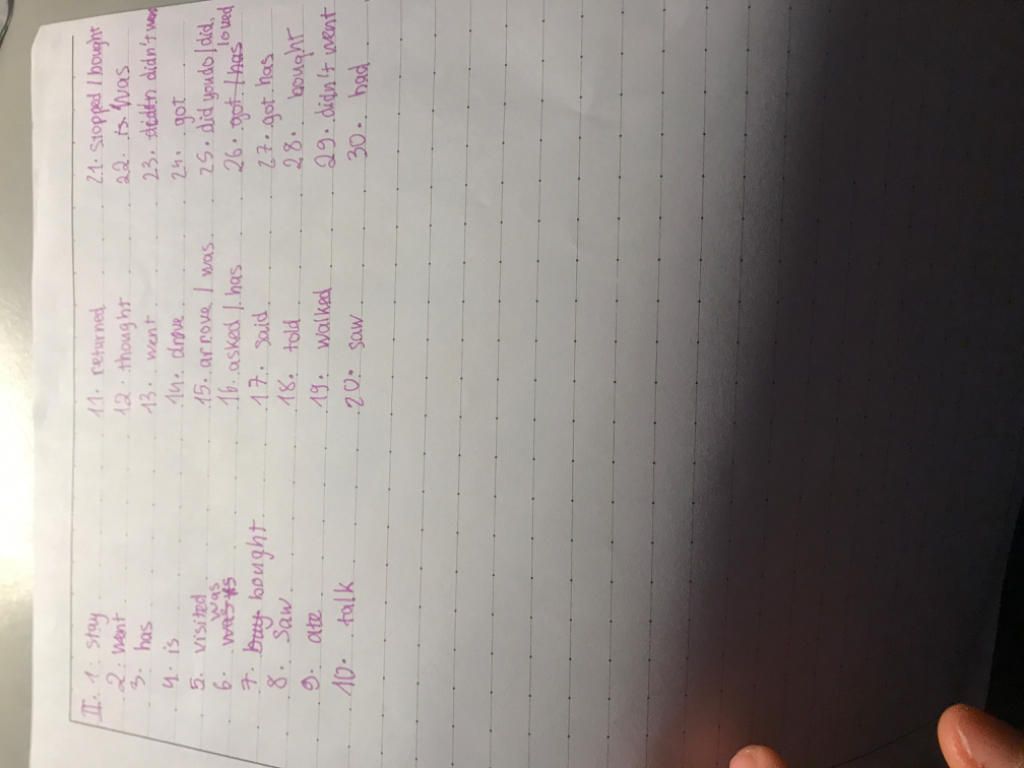 II. 1. stay
2. went
3. has
4. is
5. visited
6. was
7. bought
8. saw
9. ate
10. talk
11. returned
12. thought
13. went
14. drove
15. arrove / was
16. asked / has
17. said
18. told
19. walked
20. saw
21. stopped / bought
22. is was
23. didn't
24. got
25. did you do / did.
26. got / has loved
27. got has
28. bought
29. didn't went
30. had